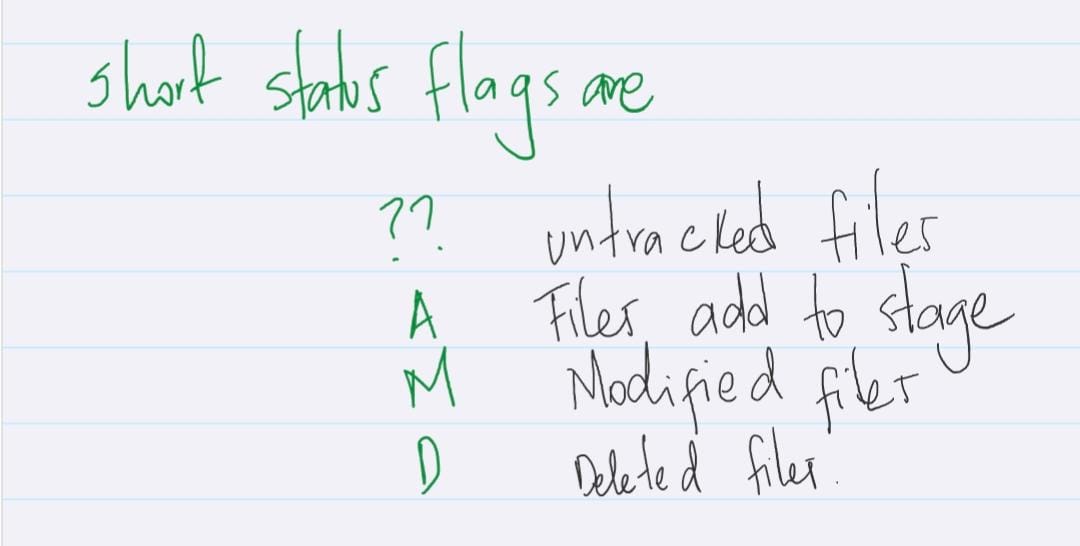 short status flags are
?? untracked files
A Files add to stage
M Modified files
D Deleted files.